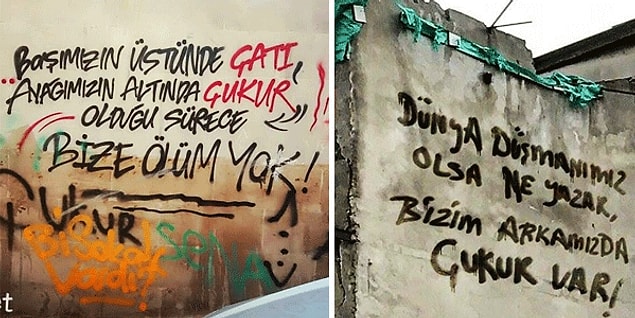 BAŞIMIZIN ÜSTÜNDE ÇATI,
AYAĞIMIZIN ALTINDA ÇUKUR
OLDUĞU SÜRECE
BİZE ÖLÜM YOK!
ÇUKUR
SENA
Vardı!
et
DÜNYA DÜŞMANIMIZ
OLSA NE YAZAR,
BİZİM ARKAMIZDA
ÇUKUR VAR!